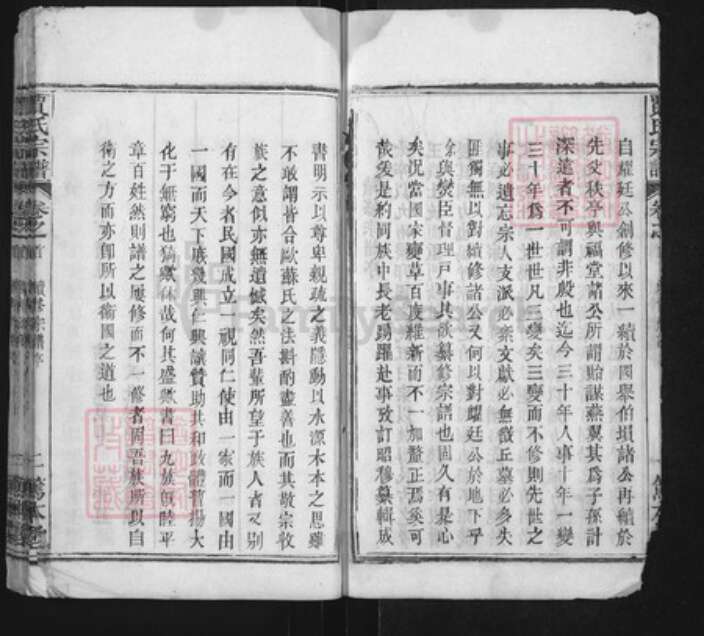 自耀廷公創修以來一續於國舉伯塤諸公再續於
先父秩亭與福堂諸公所謂貽謀燕翼其爲子孫計
深遠者不可謂非殷也迄今三十年人事十年一變
三十年爲一世世凡三變矣三變而不修則先世之
事必遺忘宗人支派必紊文獻必無徵丘墓必多失
匪獨無以對續修諸公又何以對耀廷公於地下乎
余與燮臣督理戸事其欲纂修宗譜也固久有是心
矣況當國宋變革百度維新而不一加釐正焉奚可
哉爰是約同族中長老踴躍赴事攷訂昭穆纂輯成
書明示以尊卑親疏之義隱動以水源木本之思雖
不敢謂皆合歐蘇氏之法斟酌盡善也而其敬宗收
族之意似亦無遺憾矣然吾輩所望于族人者又別
有在今者民國成立一視同仁使由一家而一國由
一國而天下底幾興仁興讓贊助共和政體發揚大
化于無窮也猗歟休哉何其盛歟書曰九族旣睦平
章百姓然則譜之屢修而不一修者固吾族所以自
衛之方而亦卽所以衛國之道也
賈氏宗譜
卷之首
續修宗譜序
二
篤本堂